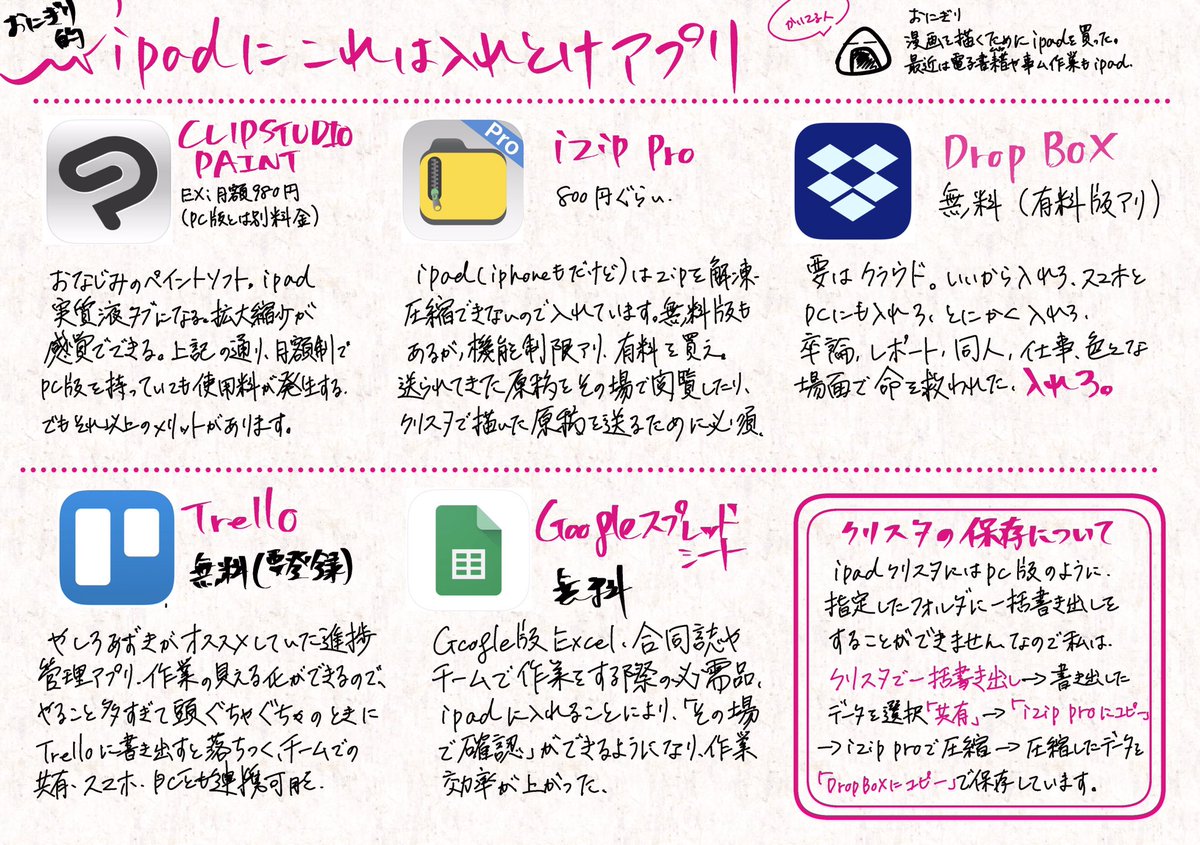 おにぎり的
ipadにこれは入れとけアプリ
かいてる人
おにぎり
漫画を描くためにipadを買った。
最近は電子書籍や事ム作業もipad.
CLIP STUDIO
PAINT
EX:月額980円
(PC版とは別料金)
おなじみのペイントソフト。ipad
実質液タブになる。拡大縮小が
感覚でできる。上記の通り、月額制で
PC版を持っていても使用料が発生する.
でもそれ以上のメリットがあります。
Pro
izip Pro
800円ぐらい.
ipad(iphoneもだけど)はzipを解凍・
圧縮できないので入れています。無料版も
あるが、機能制限アリ、有料を買え。
送られてきた原稿をその場で閲覧したり、
クリスタで描いた原稿を送るために必須.
Drop Box
無料(有料版アリ)
要はクラウド。いいから入れろ、スマホと
PCにも入れろ、とにかく入れろ.
卒論,レポート,同人,仕事、色々な
場面で命を救われた、入れろ。
Trello
無料(要登録)
やしろあずきがオススメしていた進捗
管理アプリ.作業の見える化ができるので、
やること多すぎて頭ぐちゃぐちゃのときに
Trelloに書き出すと落ちつく、チームでの
共有、スマホ、PCとも連携可能.
Googleスプレッド
シート
無料
Google版Excel、合同誌や
チームで作業をする際の必需品,
ipadに入れることにより、「その場
で確認」ができるようになり、作業
効率が上がった、
クリスタの保存について
ipadクリスタにはpc版のように、
指定したフォルダに一括書き出しを
することができません、なので私は、
クリスタで一括書き出し→書き出した
データを選択「共有」→「izip proにコピー」
→izip proで圧縮→圧縮したデータを
「DropBoxにコピー」で保存しています。